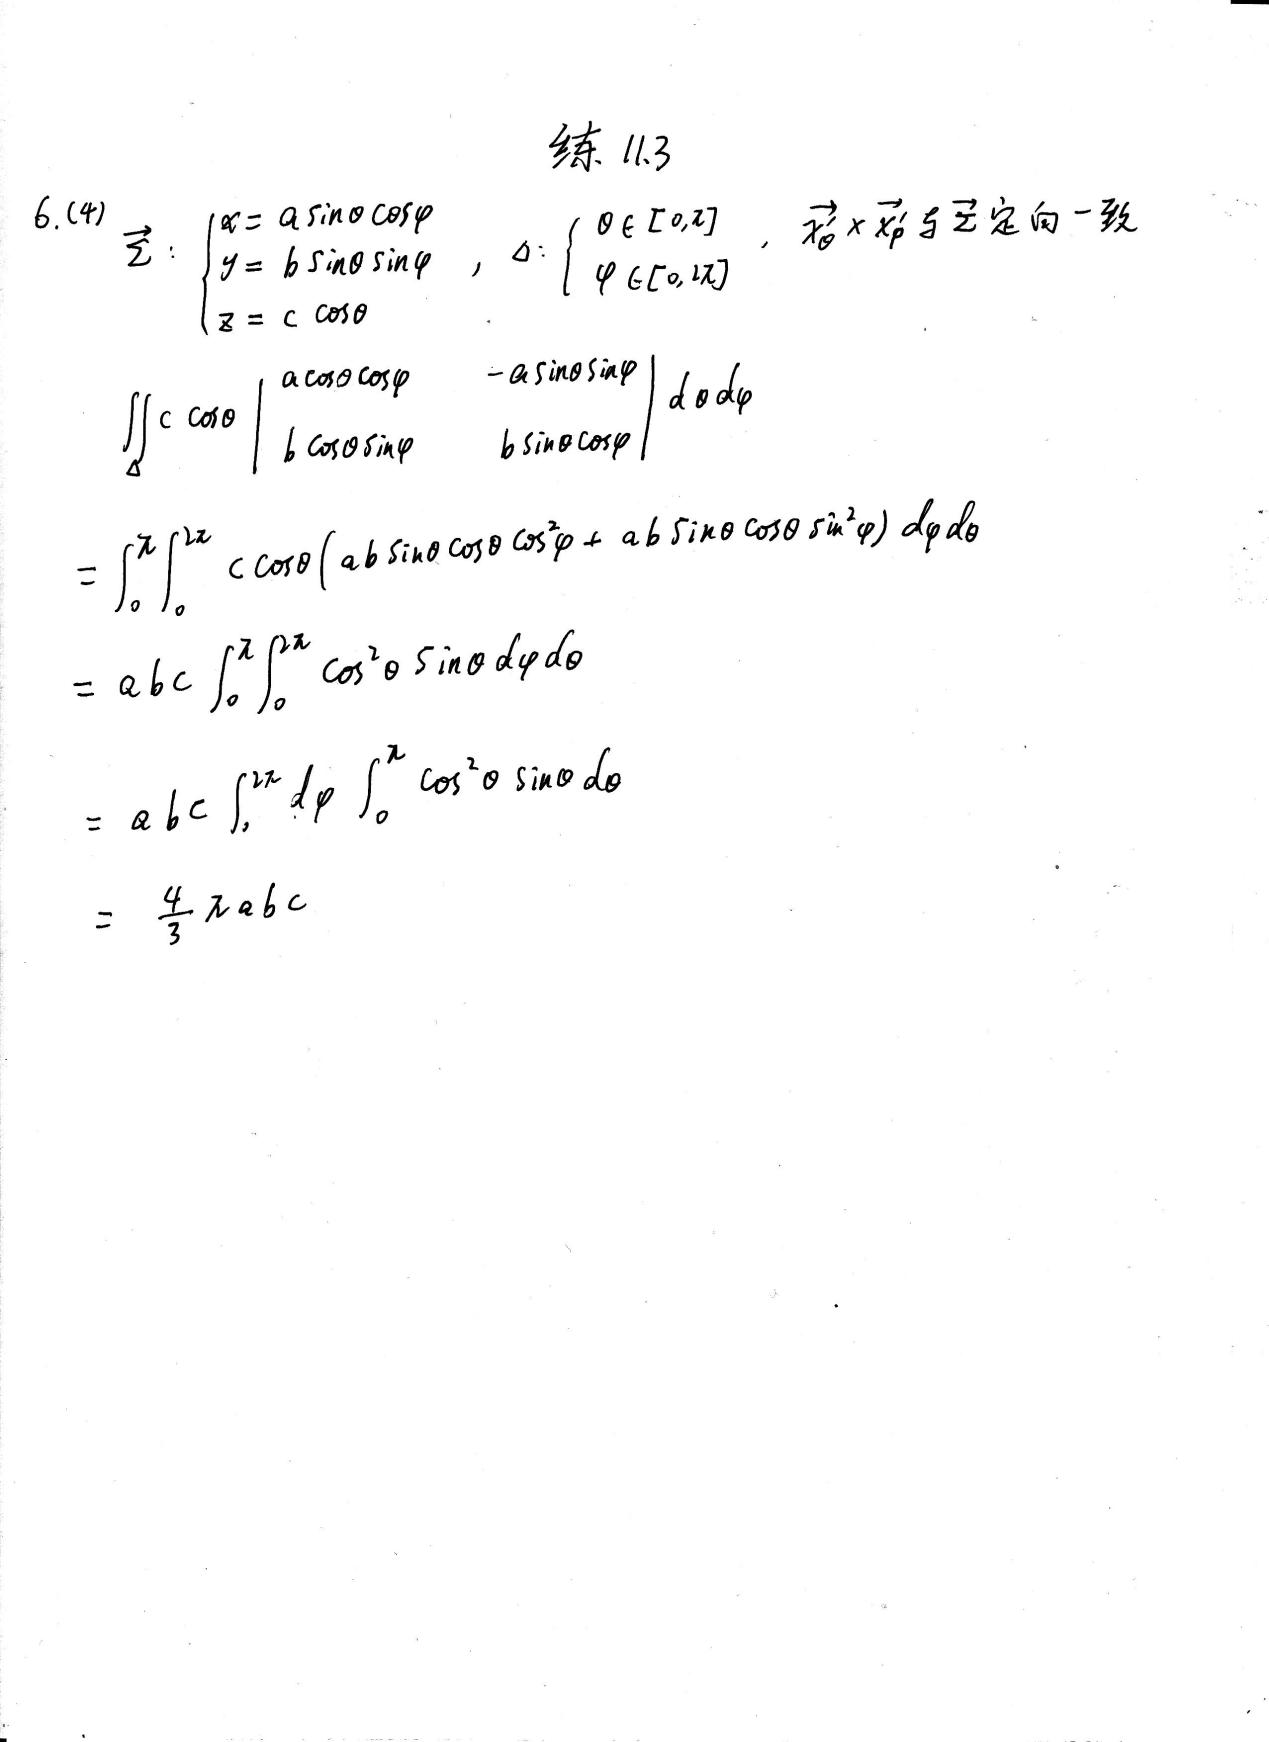 练 11.3
6.(4) $\vec{\Sigma}: \begin{cases} x = a\sin\theta\cos\varphi \\ y = b\sin\theta\sin\varphi \\ z = c\cos\theta \end{cases}$, $\Delta: \begin{cases} \theta \in [0,\pi] \\ \varphi \in [0,2\pi] \end{cases}$, $\vec{x}'_\theta \times \vec{x}'_\varphi$ 与 $\vec{\Sigma}$ 定向一致
$\iint_\Delta c\cos\theta \begin{vmatrix} a\cos\theta\cos\varphi & -a\sin\theta\sin\varphi \\ b\cos\theta\sin\varphi & b\sin\theta\cos\varphi \end{vmatrix} d\theta d\varphi$
$= \int_0^\pi \int_0^{2\pi} c\cos\theta (ab\sin\theta\cos\theta\cos^2\varphi + ab\sin\theta\cos\theta\sin^2\varphi) d\varphi d\theta$
$= abc \int_0^\pi \int_0^{2\pi} \cos^2\theta \sin\theta d\varphi d\theta$
$= abc \int_0^{2\pi} d\varphi \int_0^\pi \cos^2\theta \sin\theta d\theta$
$= \frac{4}{3}\pi abc$